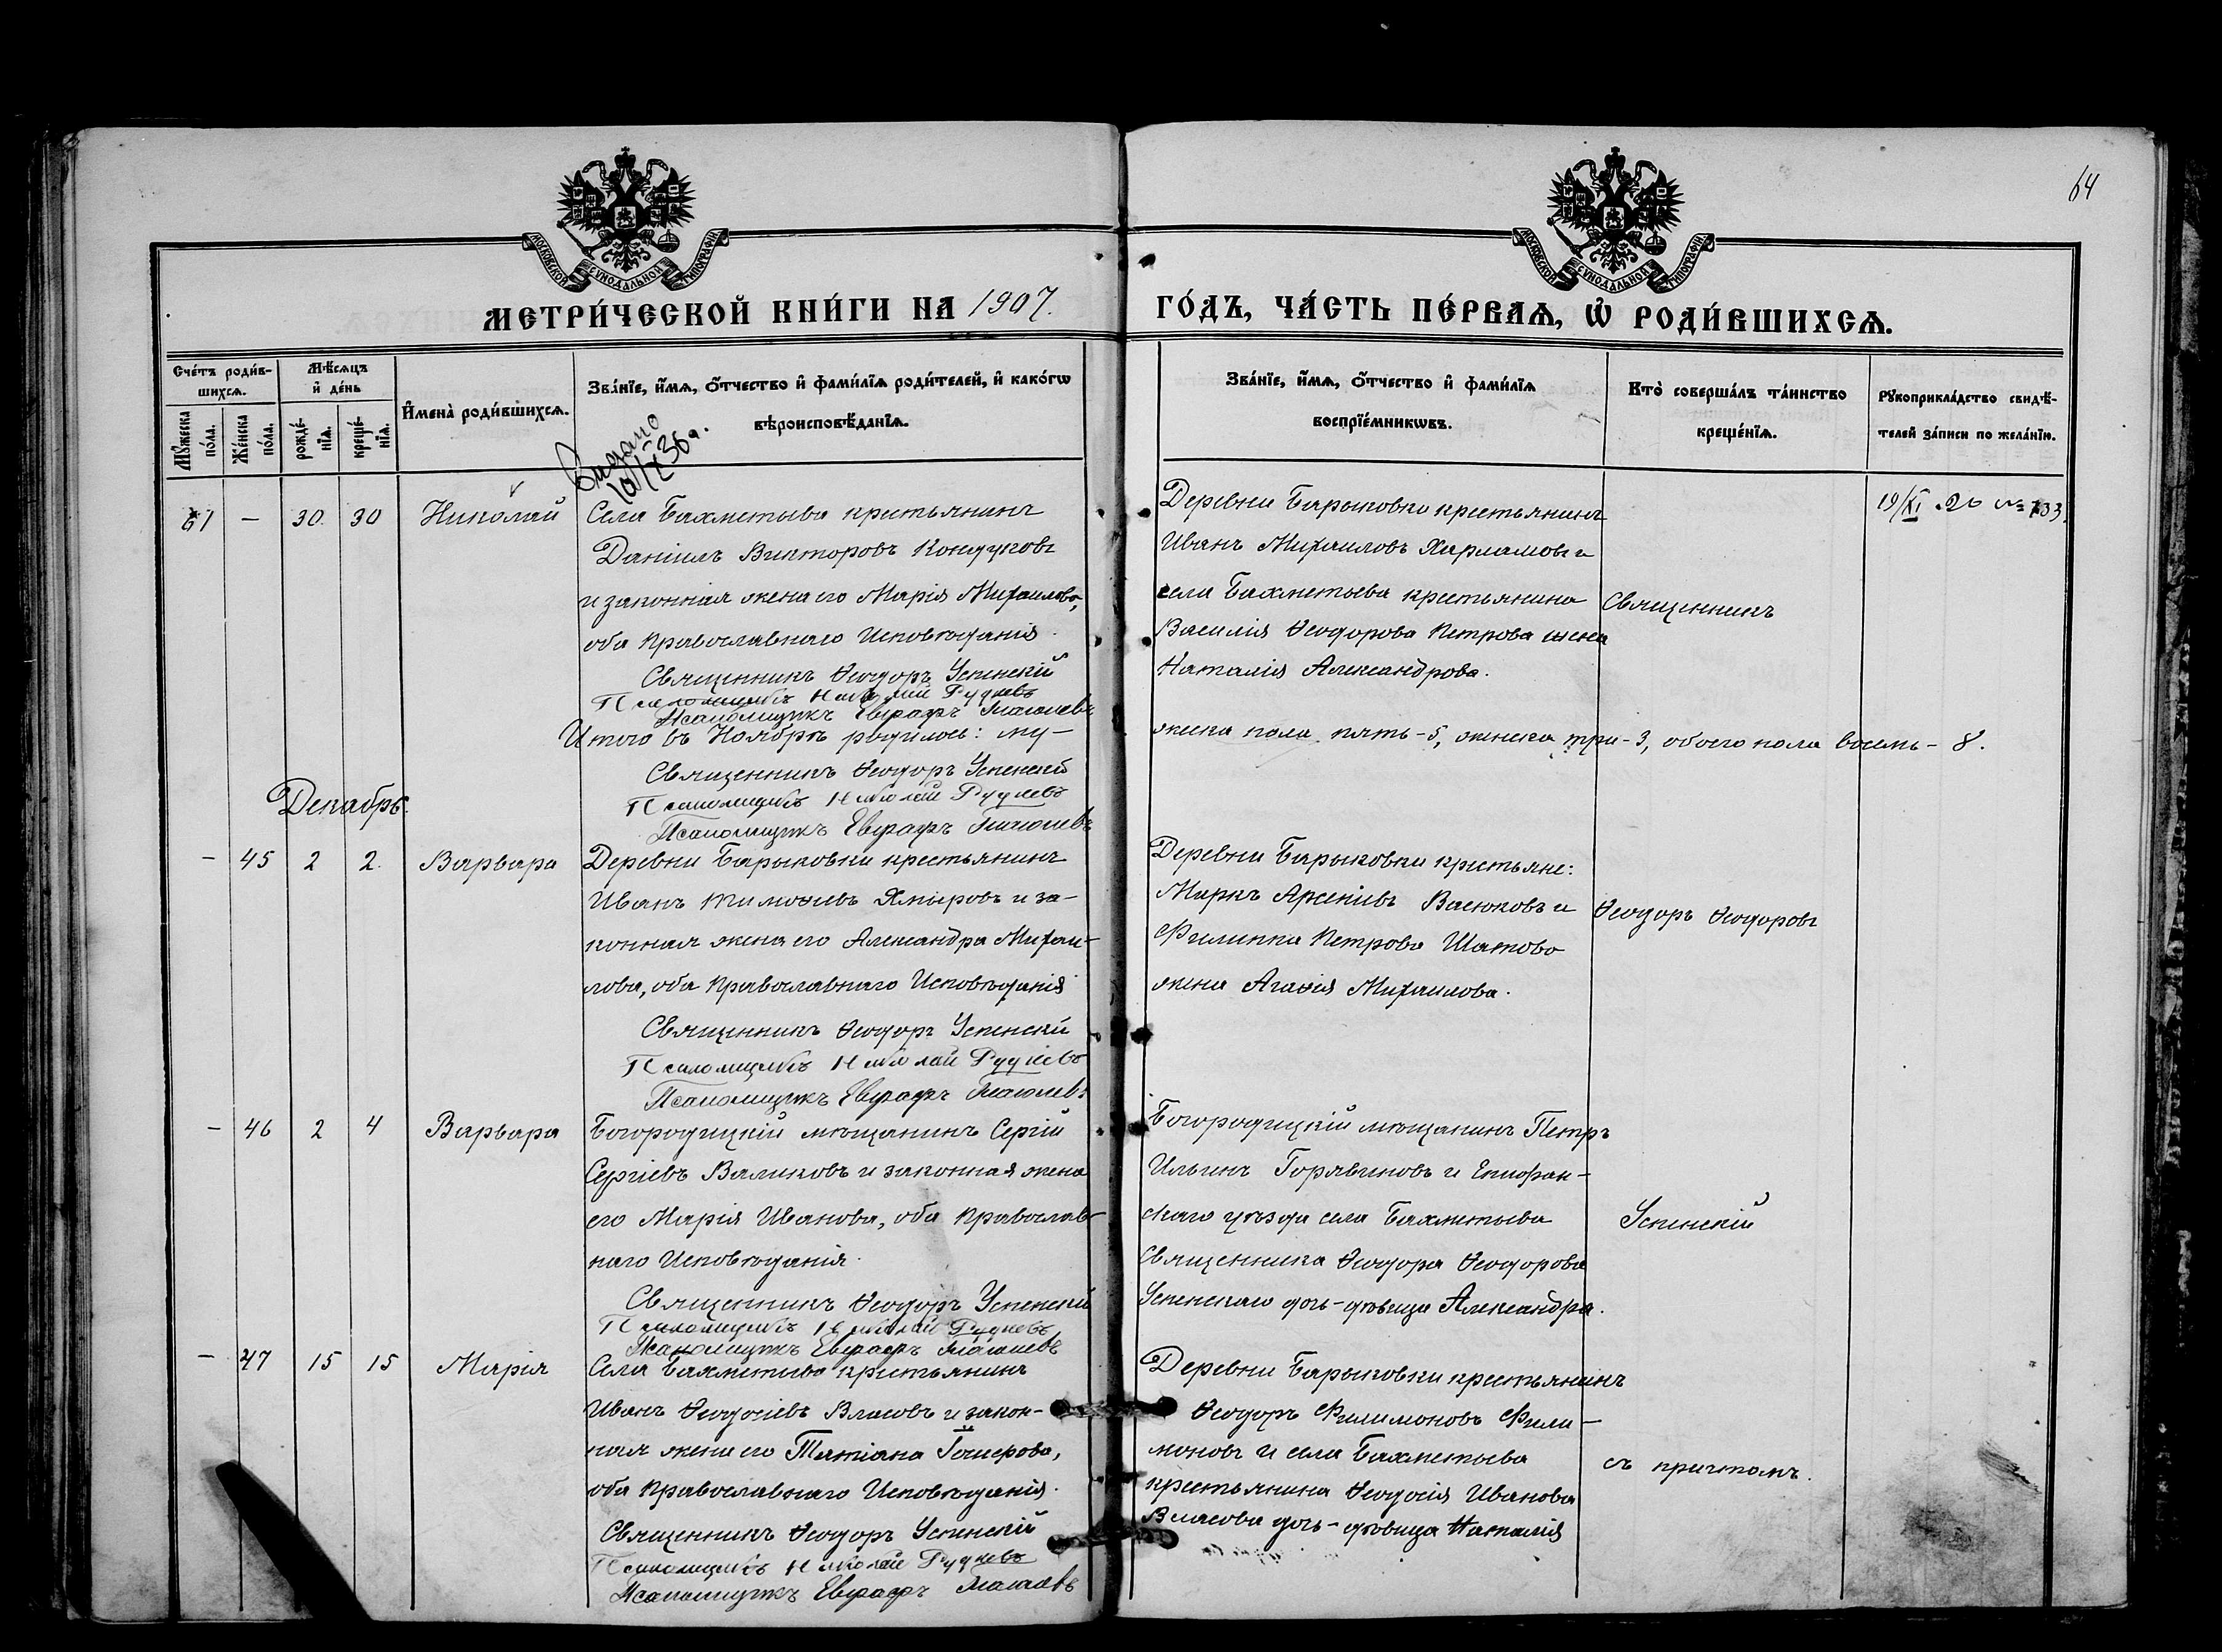 64
МОСКОВСКОЙ СѴНОДАЛЬНОЙ ТИПОГРАФІИ
МОСКОВСКОЙ СѴНОДАЛЬНОЙ ТИПОГРАФІИ
МЕТРИ́ЧЕСКОЙ КНИ́ГИ НА 1907. ГО́ДЪ, ЧА́СТЬ ПЕ́РВАѦ, Ѽ РОДИ́ВШИХСѦ.
Сче́тъ роди́в-
шихсѧ.
Мꙋ́жеска по́ла.
Же́нска по́ла.
Мѣ́сѧцъ
и҆ де́нь
рожде́-
нїѧ.
креще́-
нїѧ.
И҆мена̀ роди́вшихсѧ.
Зва́нїе, и҆́мѧ, о҆́тчество и҆ фами́лїѧ роди́телей, и҆ како́гѡ
вѣроисповѣ́данїѧ.
Зва́нїе, и҆́мѧ, о҆́тчество и҆ фами́лїѧ
воспрїе́мникѡвъ.
Кто̀ соверша́лъ та́инство
креще́нїѧ.
Рꙋкоприкла́дство свидѣ́-
телей за́писи по жела́нїю.
Выдано
61 — 30. 30 Николай
Села Бахметьева крестьянинъ
Даніилъ Викторовъ Кондуковъ
и законная жена его Марія Михаилова,
оба Православнаго Исповѣданія.
Священникъ Ѳеодоръ Успенскій
Псаломщикъ Николай Рудневъ
Псаломщикъ Евграфъ
Деревни Барыковки крестьянинъ
Иванъ Михаиловъ Харламовъ и
села Бахметьева крестьянина
Василія Ѳеодорова Петрова жена
Наталія Александрова.
Священникъ
19/XI 26 № 733.
Итого въ Ноябрѣ родилось: му-
жеска пола пять - 5, женска три - 3, обоего пола восемь - 8.
Священникъ Ѳеодоръ Успенскій
Псаломщикъ Николай Рудневъ
Псаломщикъ Евграфъ
Декабрь.
— 45 2 2. Варвара
Деревни Барыковки крестьянинъ
Иванъ Тимоѳеевъ Хмыровъ и за-
конная жена его Александра Михаи-
лова, оба Православнаго Исповѣданія
Священникъ Ѳеодоръ Успенскій
Псаломщикъ Николай Рудневъ
Псаломщикъ Евграфъ
Деревни Барыковки крестьяне:
Маркъ Арсеніевъ Васюковъ и
Филиппа Петрова Шатова
жена Агаѳія Михаилова.
Ѳеодоръ Ѳеодоровъ
— 46 2 4 Варвара
Богородицкій мѣщанинъ Сергій
Сергіевъ Валиковъ и законная жена
его Марія Иванова, оба Православ-
наго Исповѣданія.
Священникъ Ѳеодоръ Успенскій
Псаломщикъ Николай Рудневъ
Псаломщикъ Евграфъ
Богородицкій мѣщанинъ Петръ
Ильинъ Горявиновъ и Епифан-
скаго уѣзда села Бахметьева
Священника Ѳеодора Ѳеодорова
Успенскаго дочь - дѣвица Александра.
Успенскій
— 47 15 15 Марія
Села Бахметьева крестьянинъ
Иванъ Ѳеодосіевъ Власовъ и закон-
ная жена его Татіана
оба Православнаго Исповѣданія.
Священникъ Ѳеодоръ Успенскій
Псаломщикъ Николай Рудневъ
Псаломщикъ Евграфъ
Деревни Барыковки крестьянинъ
Ѳеодоръ Филимоновъ Фили-
моновъ и села Бахметьева
крестьянина Ѳеодосія Иванова
Власова дочь - дѣвица Наталія
съ причтомъ.